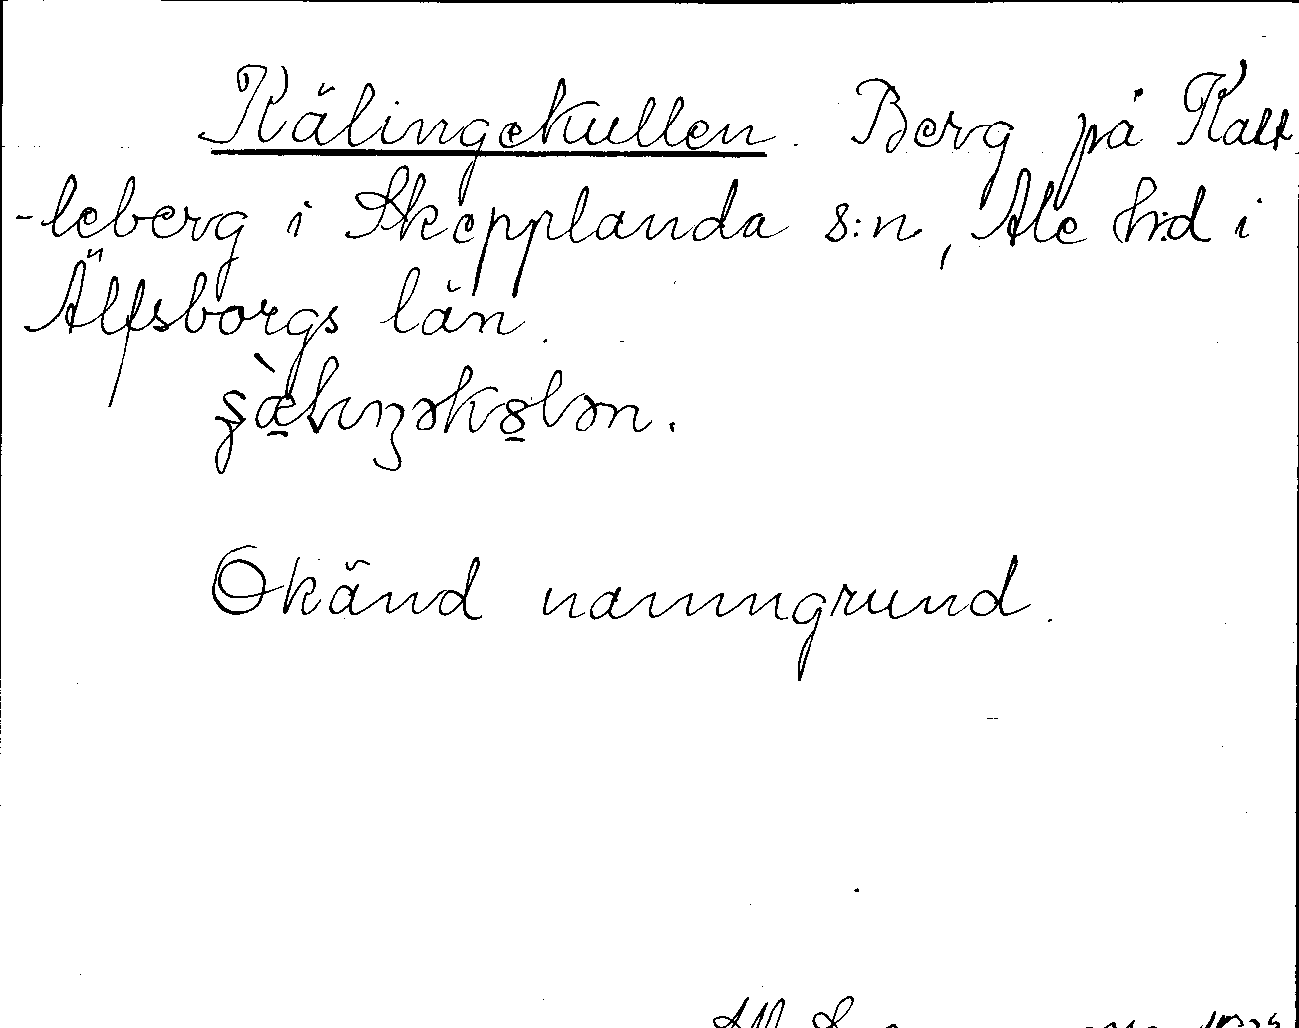 Kälingekullen. Berg på Katt
-leberg i Skepplanda s:n, Ale h:d i
Älfsborgs län.
Okänd namngrund.